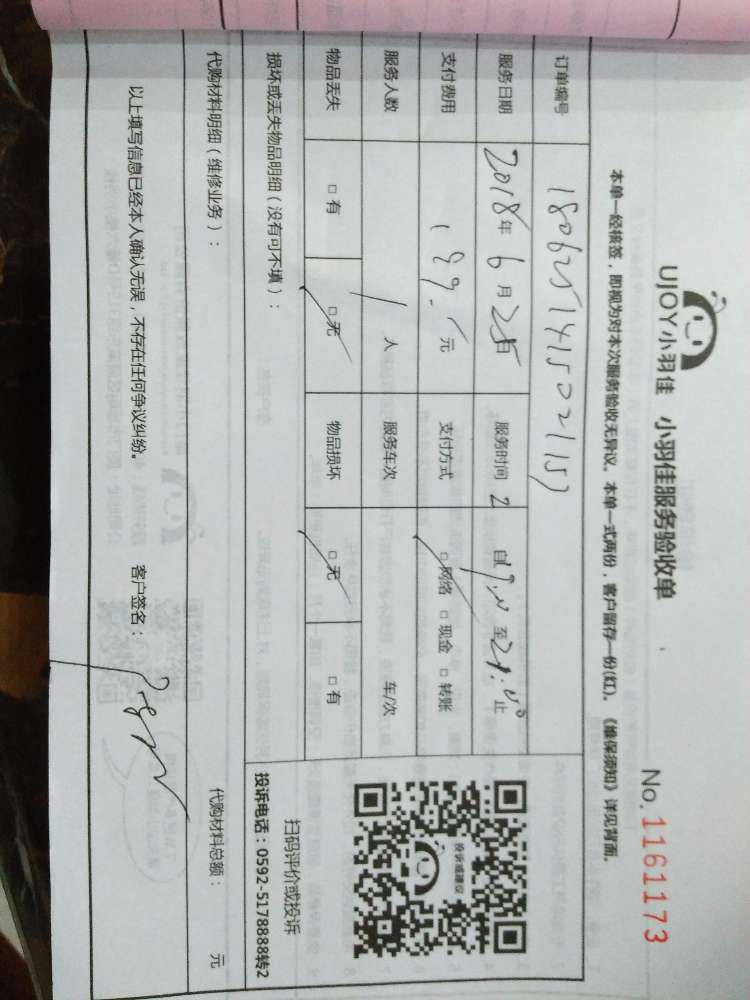 UJOY小羽佳 小羽佳服务验收单
No. 11161173
本单一经核签，即视为对本次服务验收无异议。本单一式两份，客户留存一份(红)。《维保须知》详见背面。
订单编号
服务日期 2018年 6月 25日 服务时间 自 至 止
支付费用 189. 元 支付方式 □网络 □现金 □转账
服务人数 1 人 服务车次 车/次
物品丢失 □有 □无 物品损坏 □无 □有
损坏或丢失物品明细（没有可不填）：
投诉或建议
扫码评价或投诉
投诉电话：0592-5178888转2
代购材料明细（维修业务）： 代购材料总额： 元
以上填写信息已经本人确认无误，不存在任何争议纠纷。 客户签名：